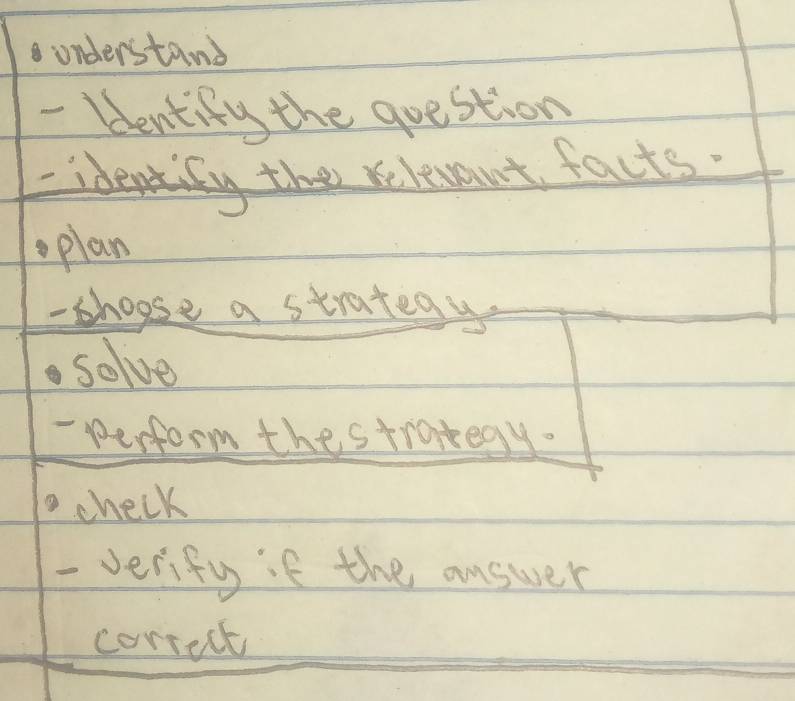 • understand
- Identify the question
- identify the relevant facts.
• plan
- choose a strategy.
• solve
- perform the strategy.
• check
- verify if the answer
correct